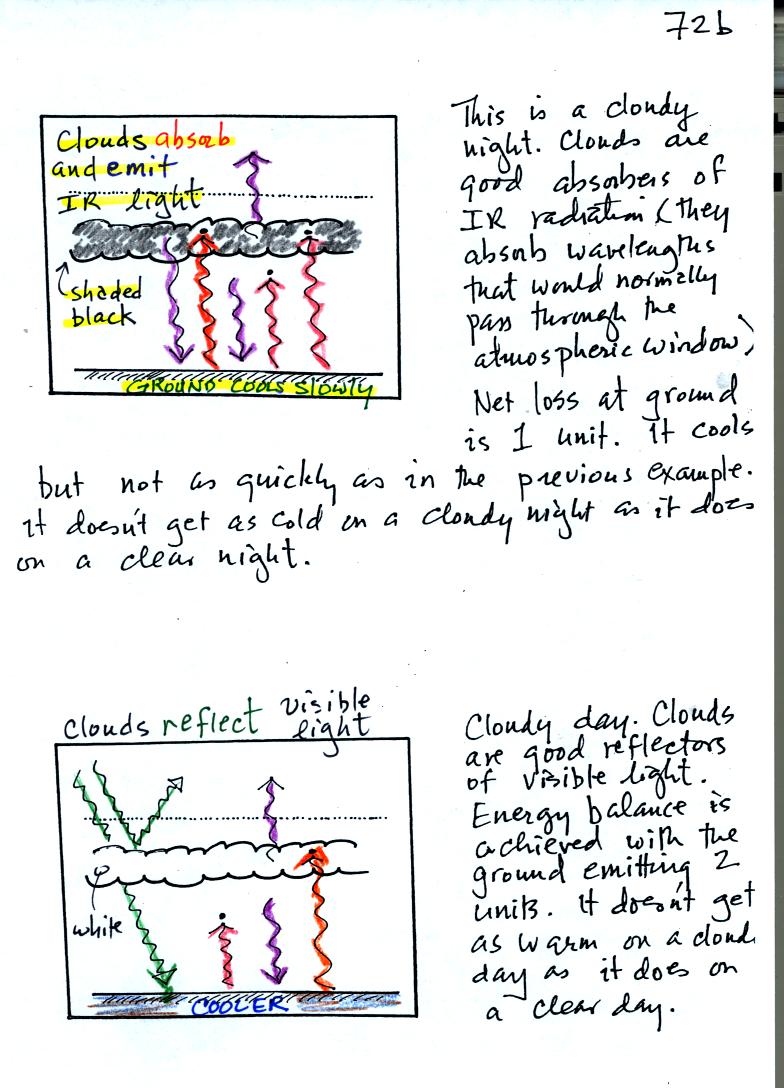 72b
Clouds absorb
and emit
IR light
shaded
black
GROUND COOLS SLOWLY
This is a cloudy
night. Clouds are
good absorbers of
IR radiation (they
absorb wavelengths
that would normally
pass through the
atmospheric window)
Net loss at ground
is 1 unit. It cools
but not as quickly as in the previous example.
It doesn't get as cold on a cloudy night as it does
on a clear night.
Clouds reflect visible
light
white
COOLER
Cloudy day. Clouds
are good reflectors
of visible light.
Energy balance is
achieved with the
ground emitting 2
units. It doesn't get
as warm on a cloud
day as it does on
a clear day.